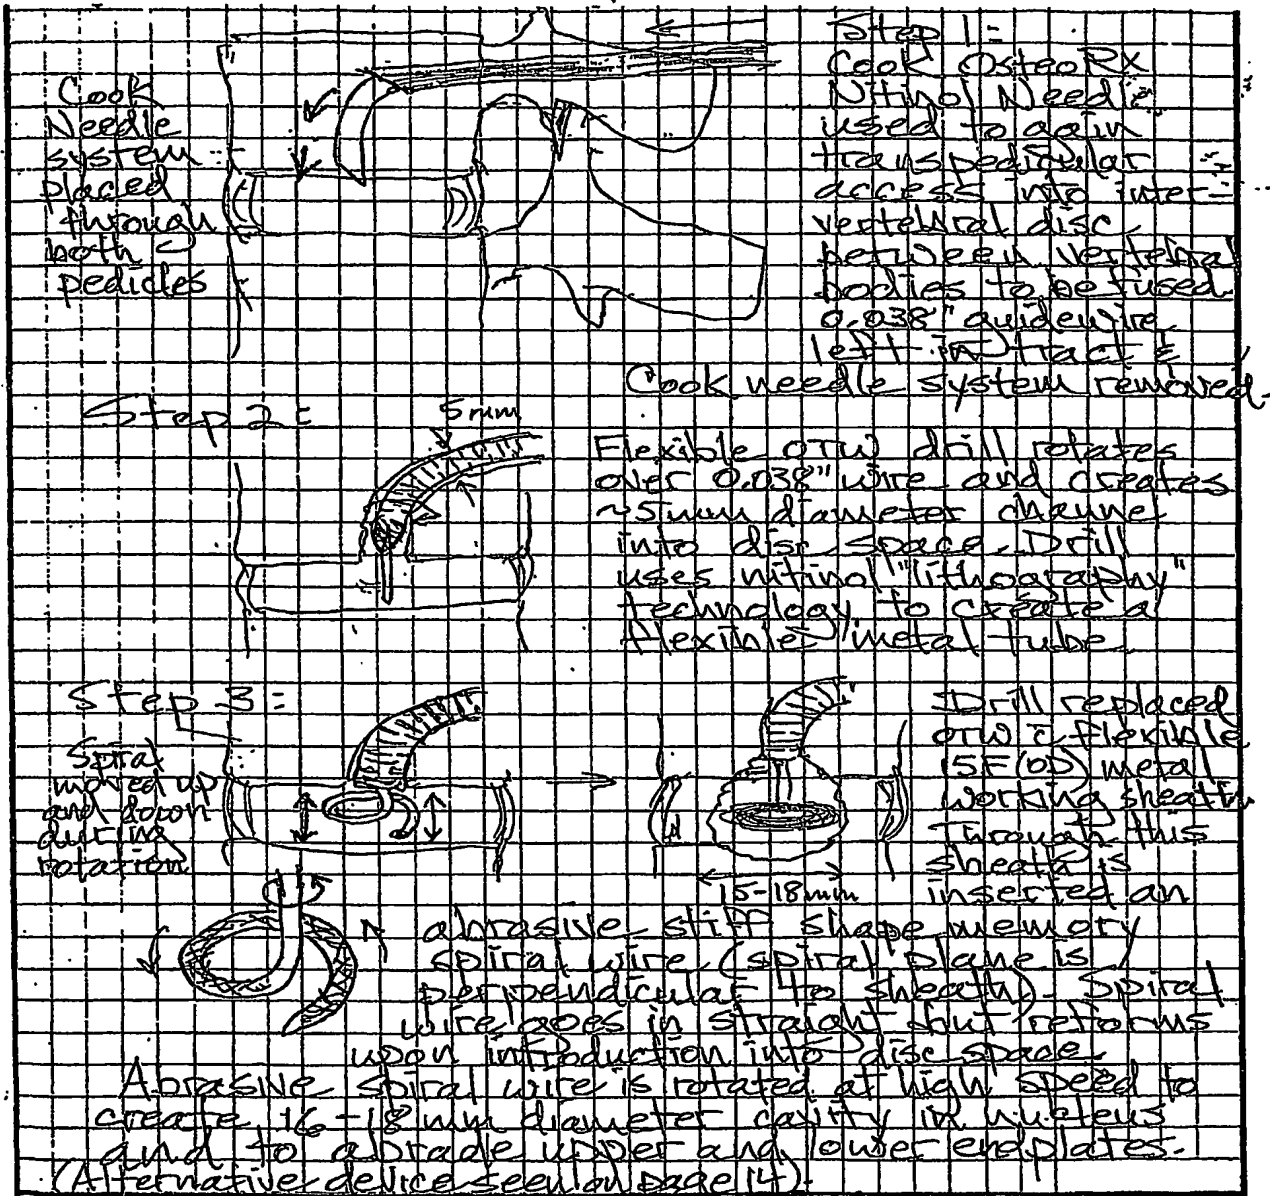 Step 1=
Cook OsteoRx
Nitinol Needle
used to gain
transpedicular
access into inter-
vertebral disc
between vertebral
bodies to be fused.
0.038" guidewire
left in tract &
Cook needle system removed.
Cook
Needle
system
placed
through
both
pedicles
Step 2=
5mm
Flexible OTW drill rotates
over 0.038" wire and creates
~5mm diameter channel
into disc space. Drill
uses nitinol "lithography"
technology to create a
flexible metal tube
Step 3=
Spiral
moved up
and down
during
rotation
15-18mm
Drill replaced
OTW c̄ flexible
15F(OD) metal
working sheath
Through this
sheath is
inserted an
abrasive stiff shape memory
spiral wire (spiral plane is
perpendicular to sheath). Spiral
wire goes in straight but reforms
upon introduction into disc space
Abrasive spiral wire is rotated at high speed to
create 16-18mm diameter cavity in nucleus
and to abrade upper and lower endplates.
(Alternative device seen on page 14).